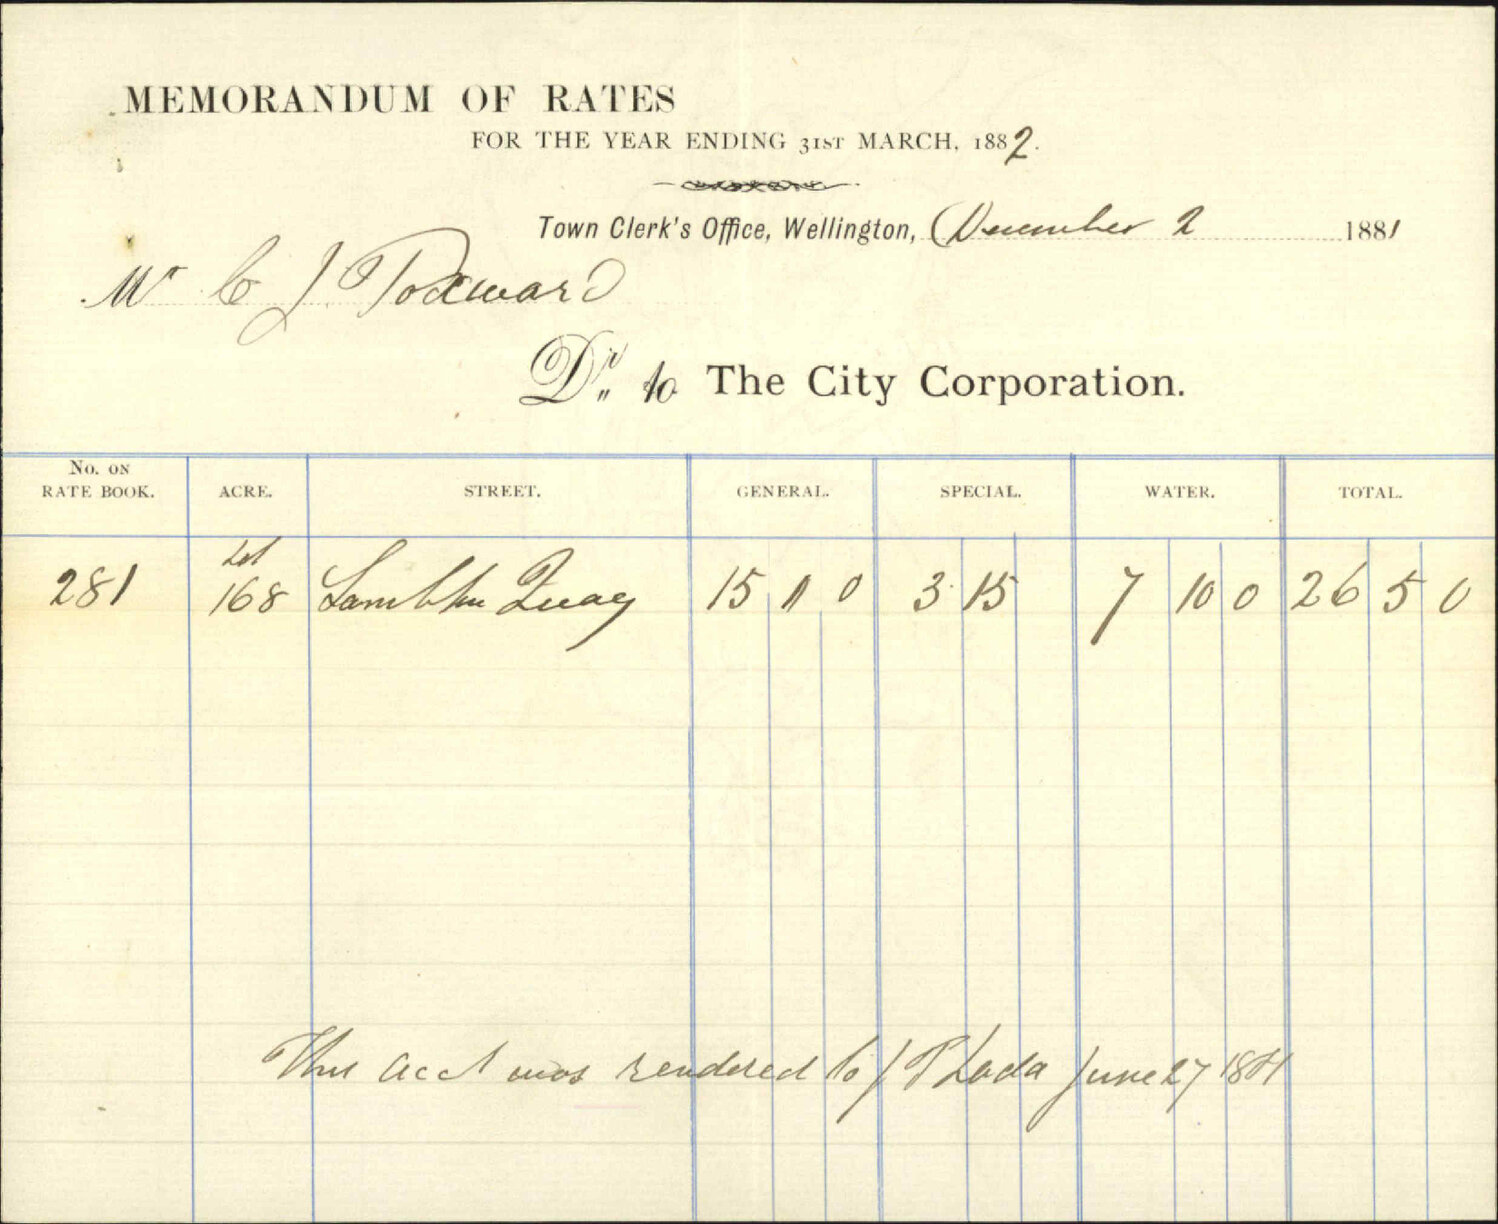 MEMORANDUM OF RATES
FOR THE YEAR ENDING 31ST MARCH, 1882.
Town Clerk's Office, Wellington, December 2 1881
Mr C J Toxward
Dr. to The City Corporation.
No. ON RATE BOOK. ACRE. STREET. GENERAL. SPECIAL. WATER. TOTAL.
281 Lot 168 Lambton Quay 15 0 0 3 15 7 10 0 26 5 0
This acct was rendered to J June 27 1881